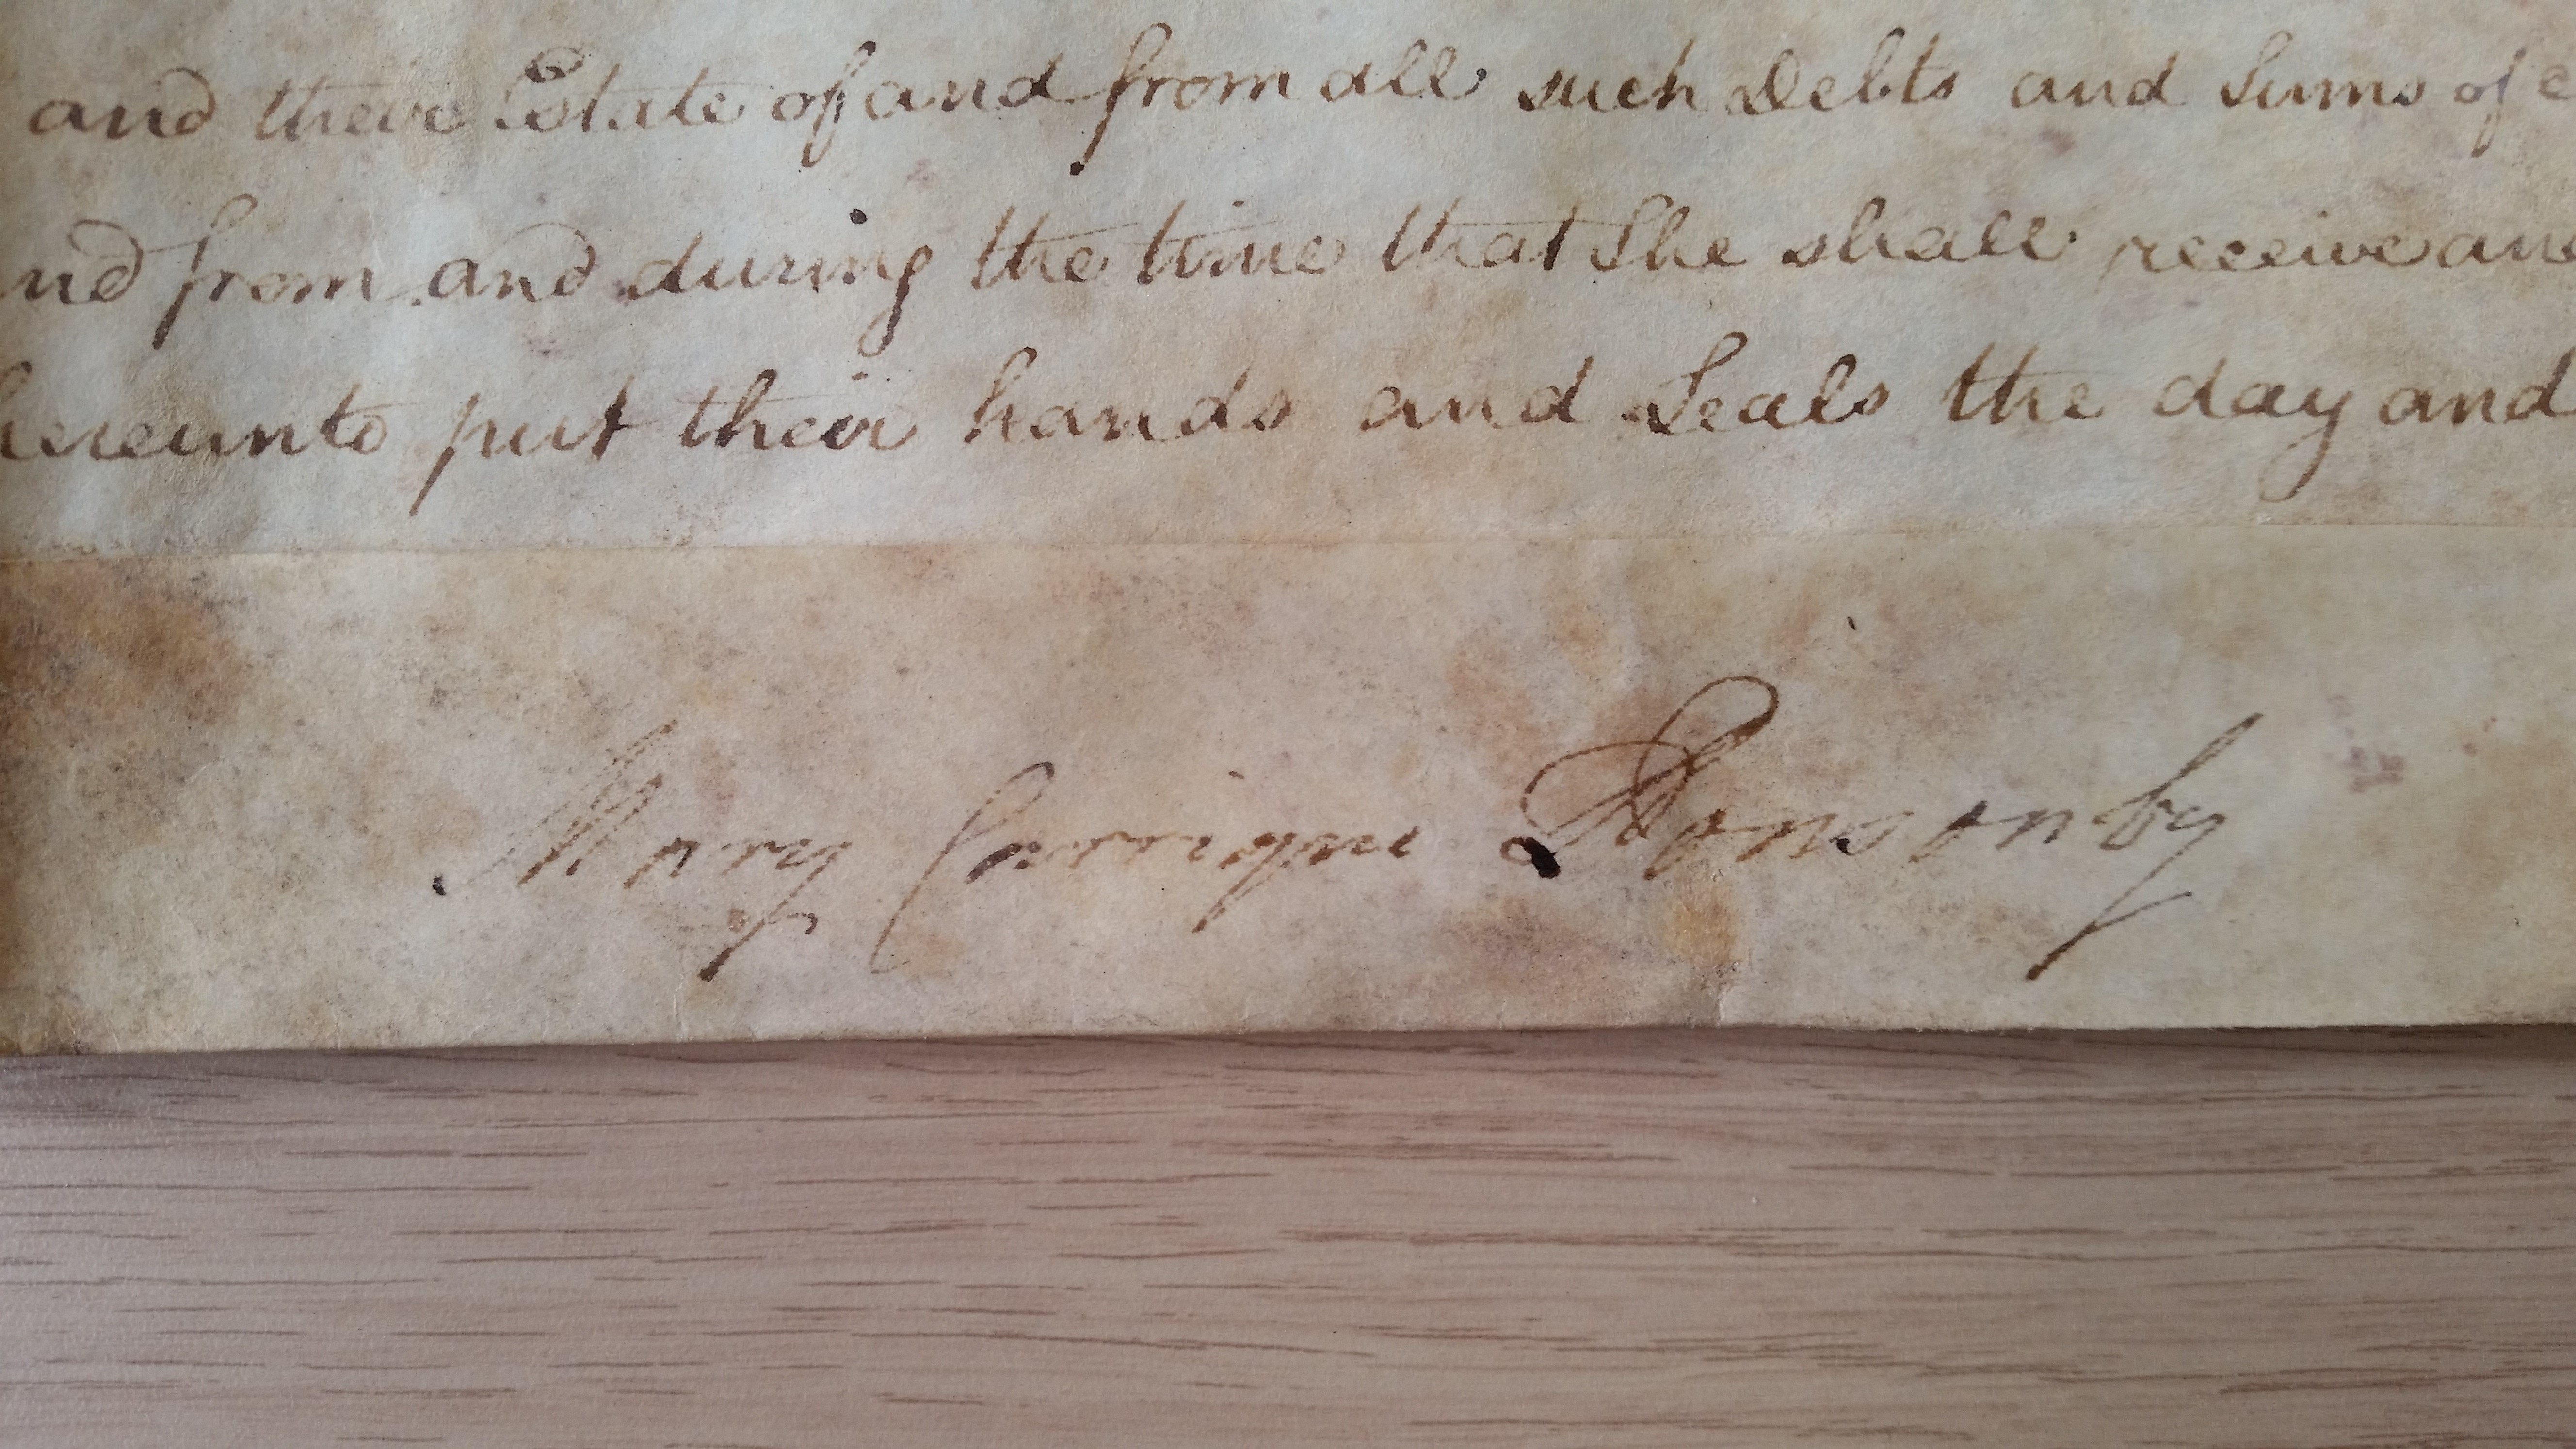 and their Estate of and from all such Debts and Sums of
nd from and during the time that She shall receive an
hereunto put their hands and Seals the day and
Mary Carrique Ponsonby